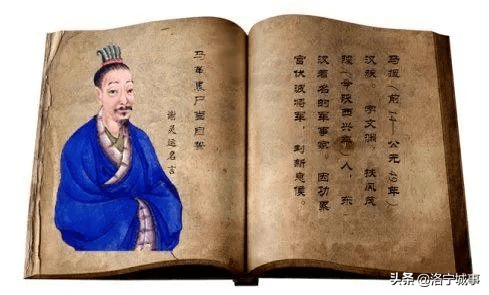 马革裹尸当自誓
谢灵运名言
马援(前14—公元49年)
汉族,字文渊,扶风茂
陵(今陕西兴平)人,东
汉著名的军事家,因功累
官伏波将军,封新息侯。
头条 @洛宁城事